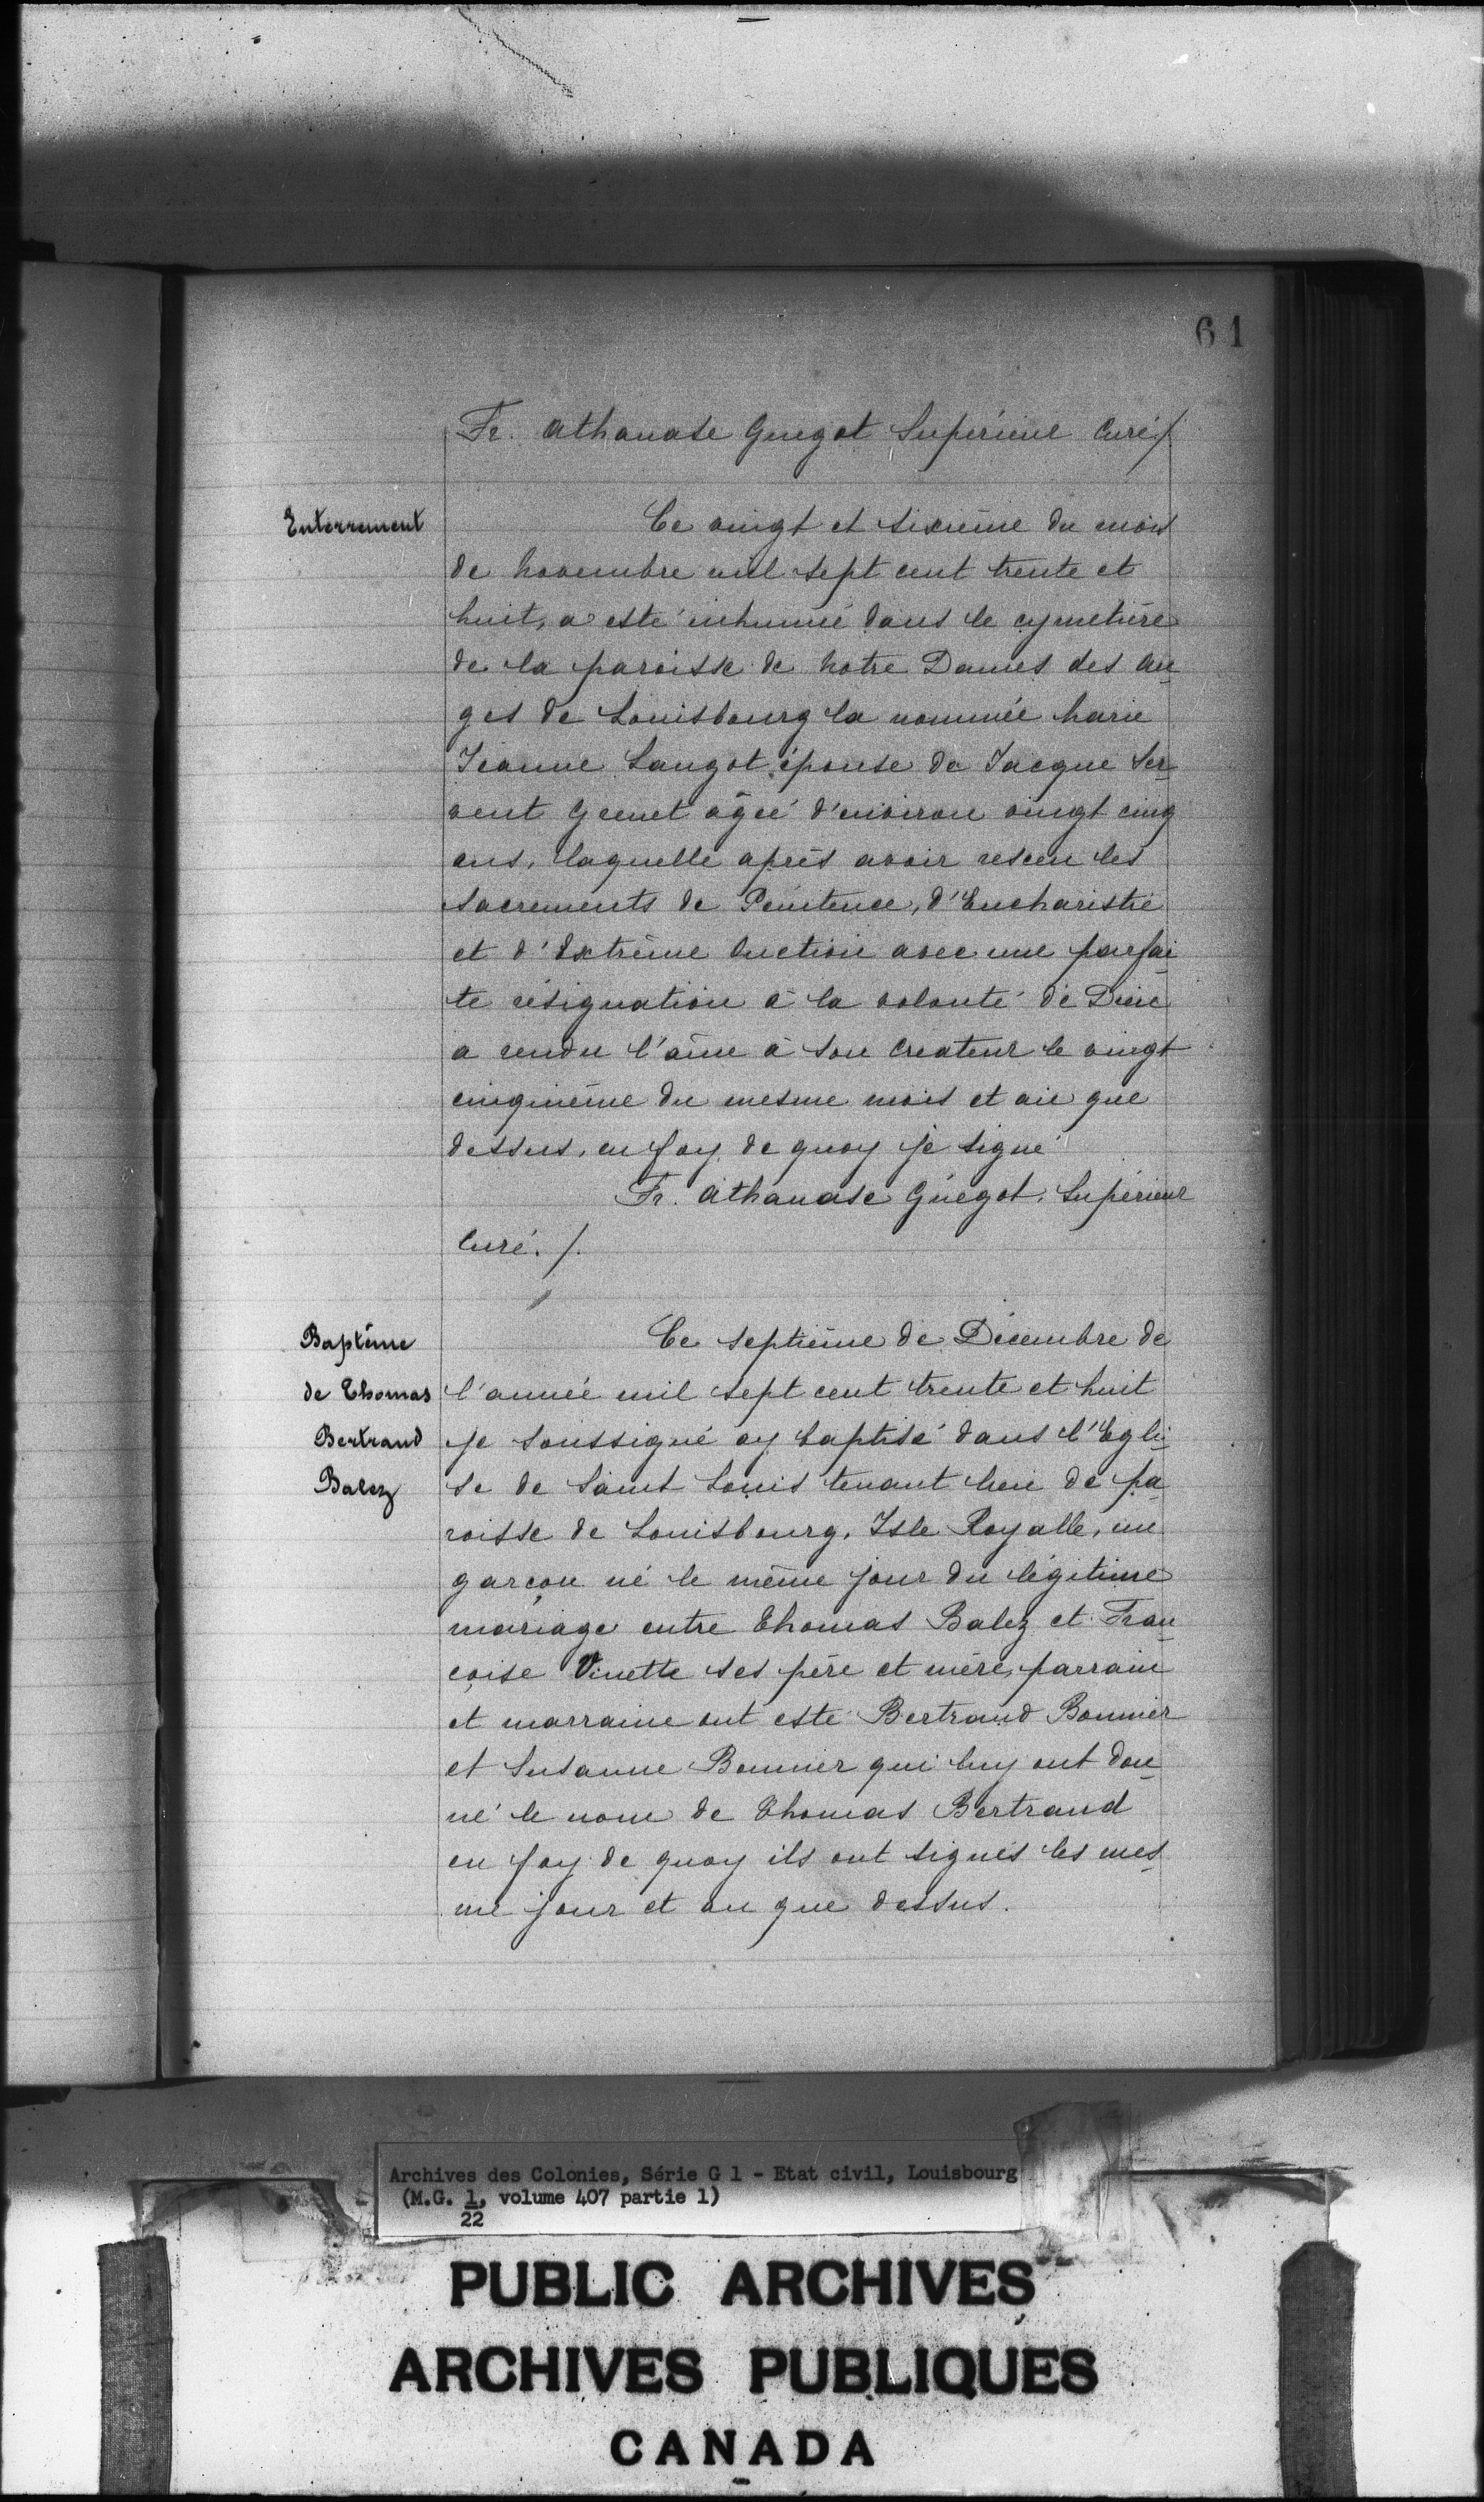 61
Fr. Athanase Guegot Supérieur Curé ./.
Enterrement
Ce vingt et sixième du mois
de Novembre mil sept cent trente et
huit, a esté inhumée dans le cymetière
de la paroisse de Notre Dames des An-
ges de Louisbourg la nommée Marie
Jeanne Langot épouse de Jacque Ser-
vent Grenet âgée d'environ vingt cinq
ans, laquelle après avoir resceu les
sacrements de Penitence, d'Eucharistie
et d'Extrême Onction avec une parfai-
te résignation à la volonté de Dieu
a rendu l'âme à son Createur le vingt
cinqième du mesme mois et an que
dessus, en foy de quoy je signe
Fr. Athanase Guégot, Supérieur
Curé ./.
Baptême
de Thomas
Bertrand
Balez
Ce septième de Décembre de
l'année mil sept cent trente et huit
je soussigné ay baptisé dans l'Egli-
se de Saint Louis tenant lieu de pa-
roisse de Louisbourg, Isle Royalle, un
garçon né le même jour du légitime
mariage entre Thomas Balez et Fran-
çoise Vinette ses père et mère, parrain
et marraine ont esté Bertrand Bonnier
et Susanne Bonnier qui luy ont don-
né le nom de Thomas Bertrand
en foy de quoy ils ont signés les mes-
me jour et an que dessus.
Archives des Colonies, Série G 1 - Etat civil, Louisbourg
(M.G. 1, volume 407 partie 1)
22
PUBLIC ARCHIVES
ARCHIVES PUBLIQUES
CANADA